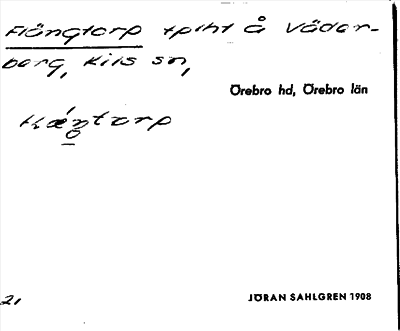 Flängtorp tpiht å Väder-
berg, Kils sn,
Örebro hd, Örebro län
21,
JÖRAN SAHLGREN 1908